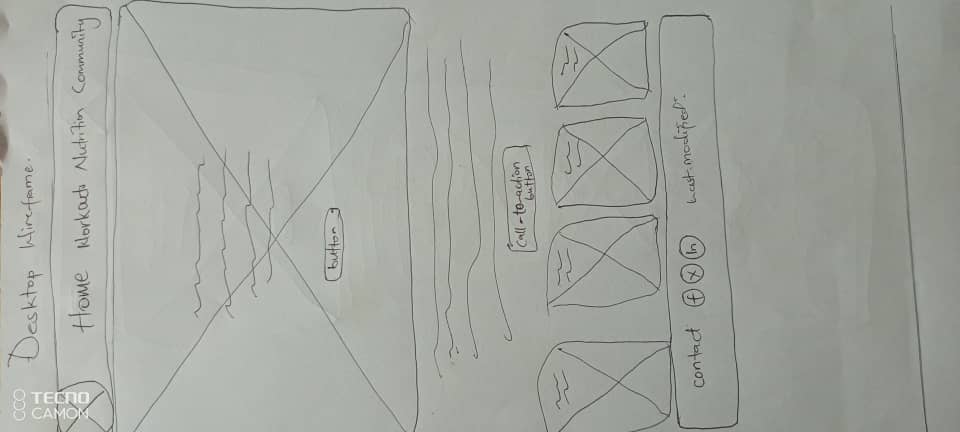 Desktop Wireframe.
Home Workouts Nutrition Community
button
Call-to-action
button
contact f X in Last modified:
TECNO
CAMON